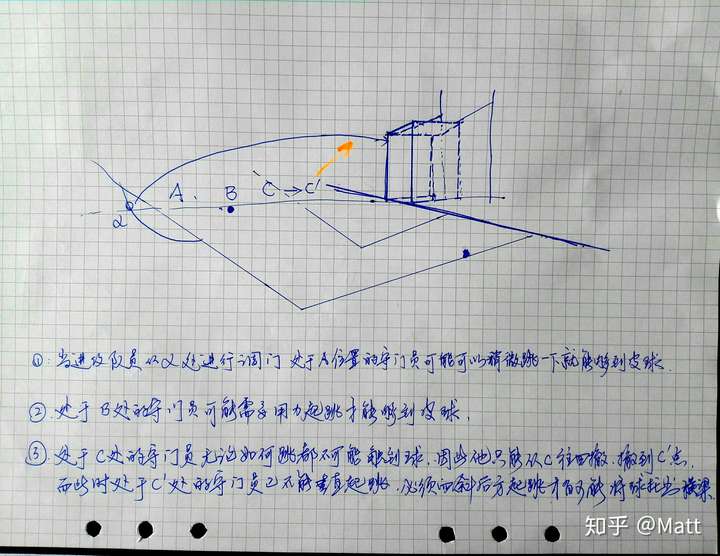 A. B C → C'
α
①. 当进攻队员从α处进行调门 处于A位置的守门员可能可以稍微跳一下就能够到皮球.
② 处于B处的守门员可能需要用力起跳才能够到皮球.
③. 处于C处的守门员无论如何跳都不可能触到球. 因此他只能从C往回撤. 撤到C'点.
而此时处于C'处的守门员已不能垂直起跳. 必须向斜后方起跳才有可能将球托出横梁
知乎 @Matt